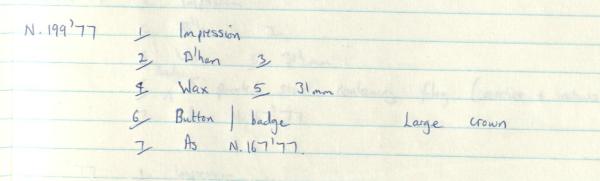 N.199'77 1 Impression
2 D'ham 3
4 Wax 5 31mm
6 Button / badge Large crown
7 As N.167'77.